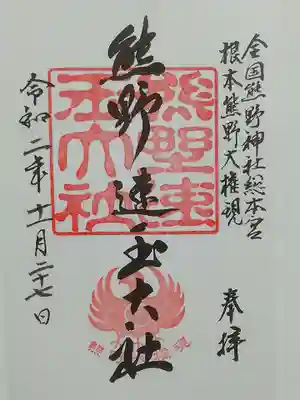 全国熊野神社総本宮
根本熊野大権現
奉拝
熊野速玉大社
熊野速玉大社
令和二年十一月二十七日